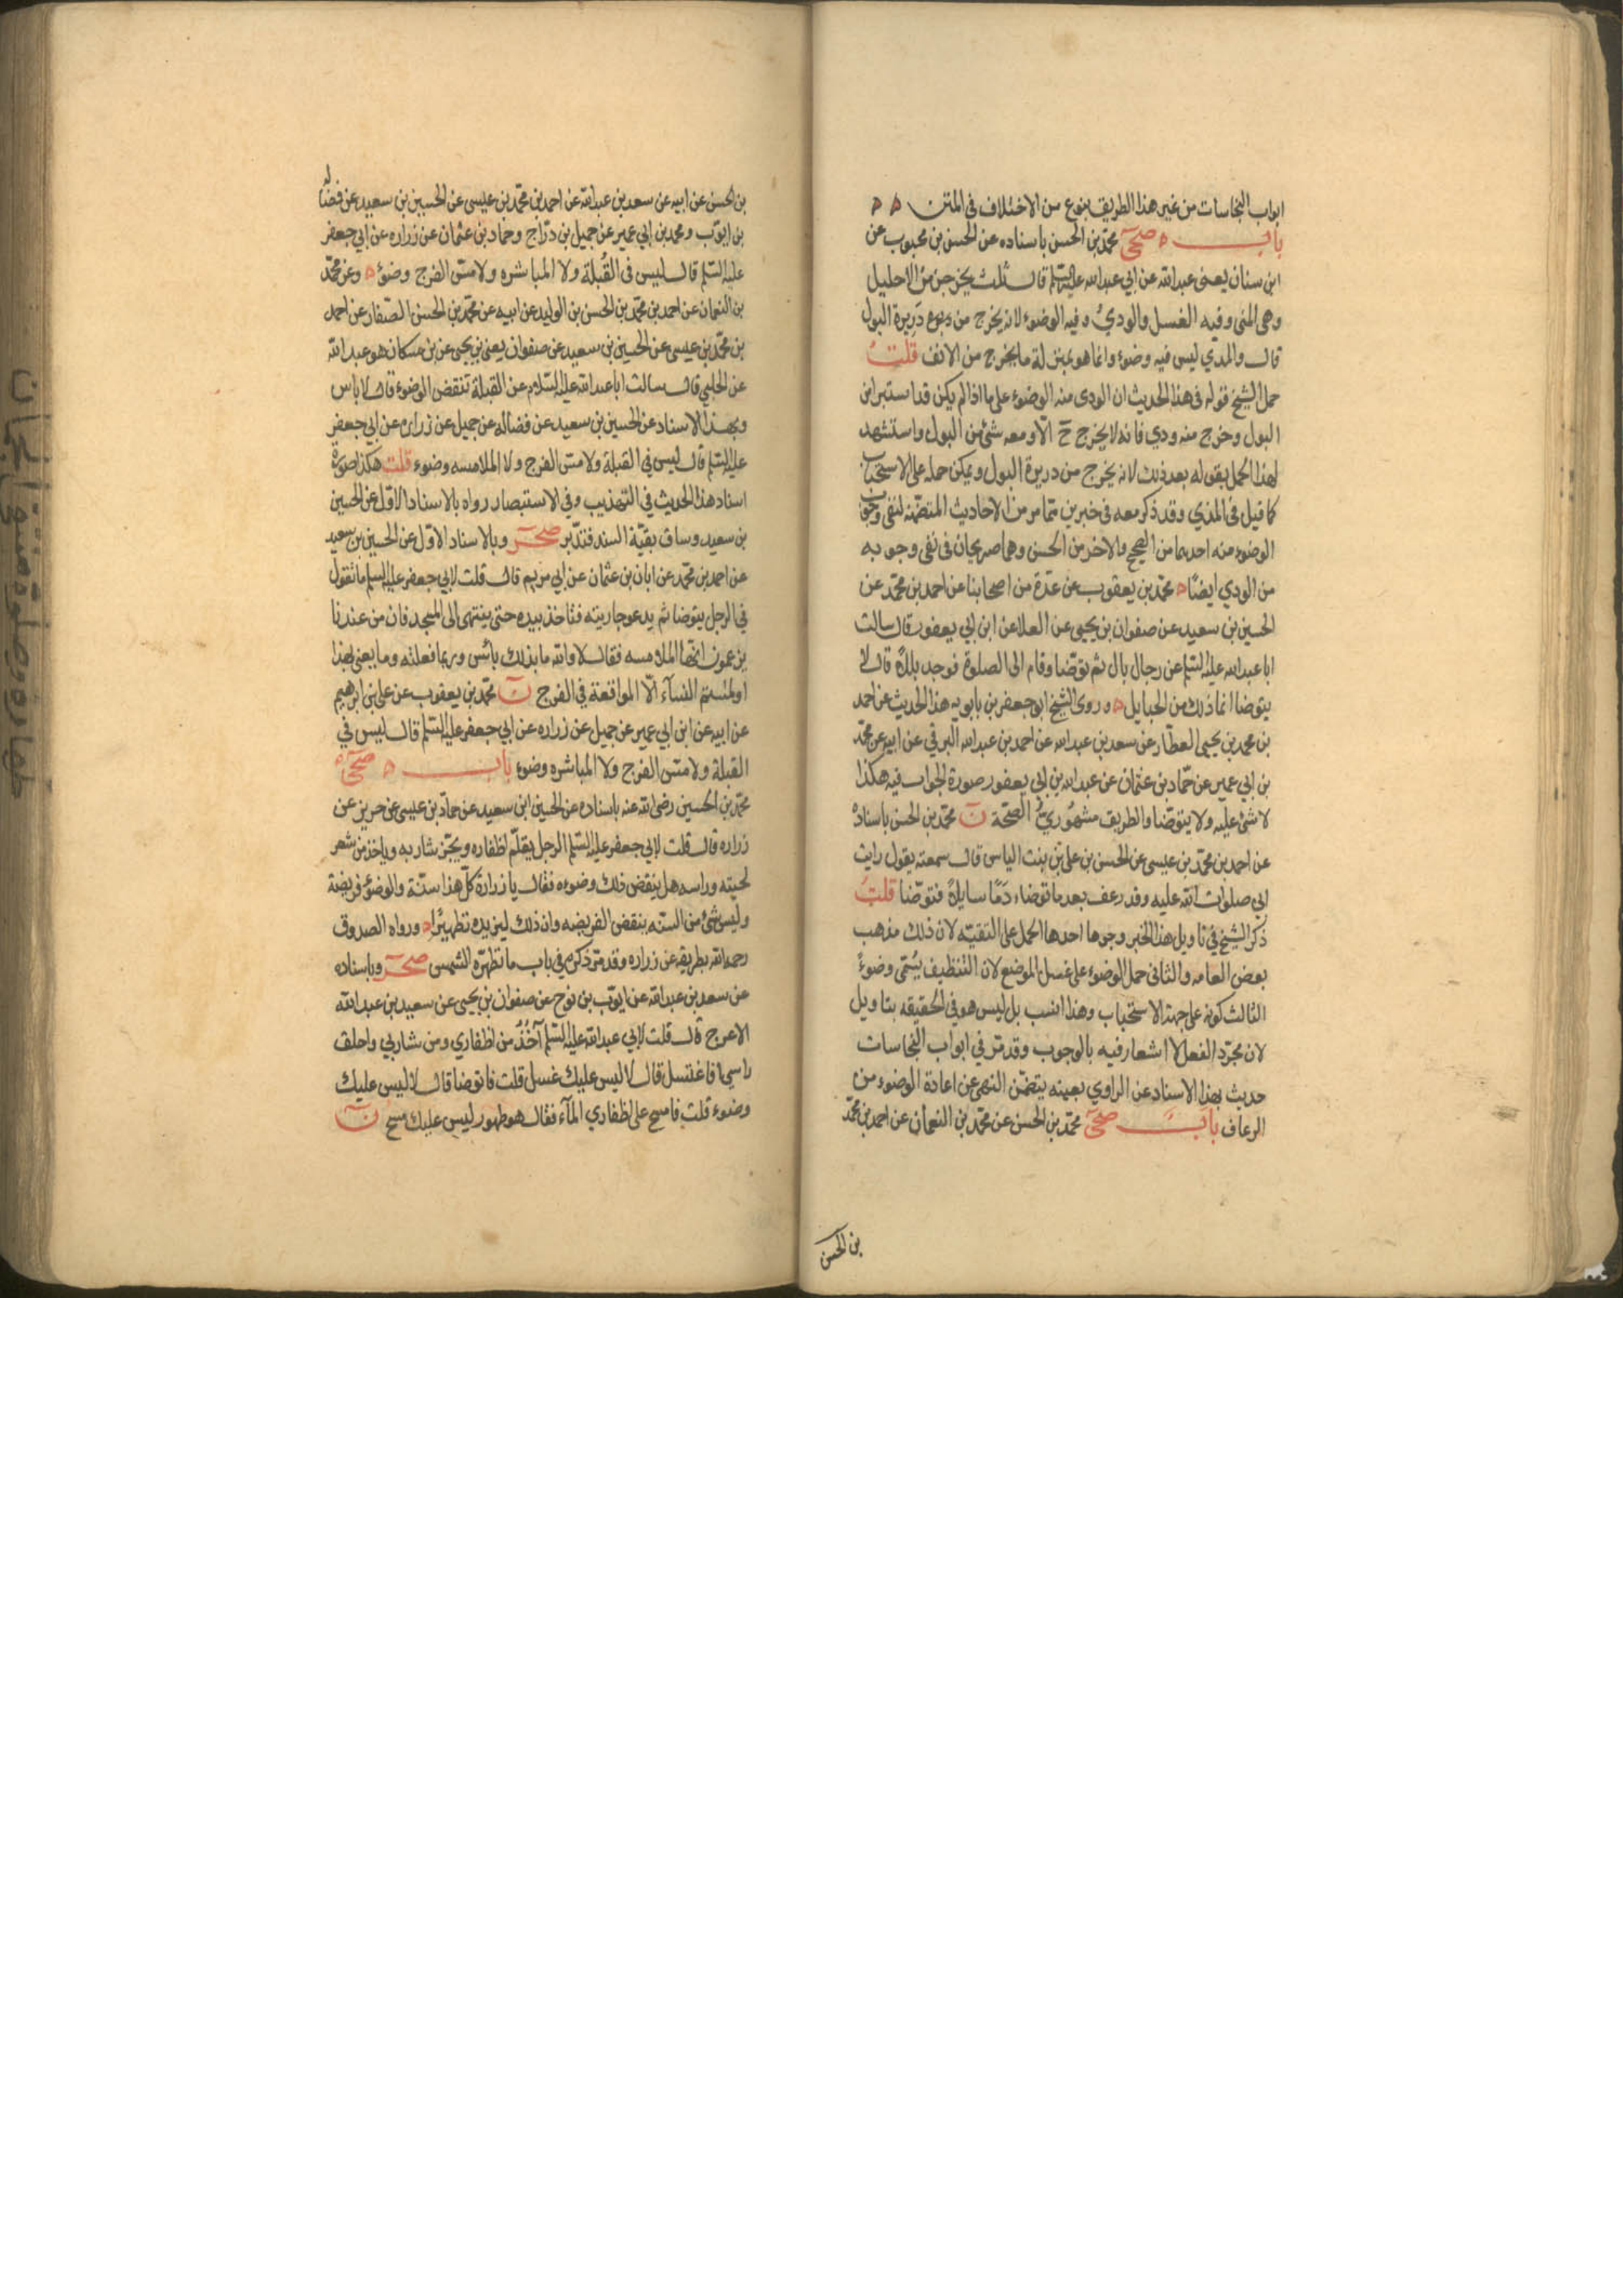 ابواب النجاسات من غير هذا الطريق بنوع من الاختلاف في المتن
باب صحي محمد بن الحسن باسناده عن الحسن بن محبوب عن
ابن سنان يعنى عبدالله عن ابي عبدالله عليه السلم قال ثلث يخرجن من الاحليل
وهى المنى وفيه الغسل والودي وفيه الوضوء لانه يخرج من دريرة البول
قال والمذي ليس فيه وضوء وانما هو بمنزلة ما يخرج من الانف قلت
حمل الشيخ قوله في هذا الحديث ان الودى منه الوضوء على ما اذا لم يكن قد استبرا من
البول وخرج منه ودي فانه لا يخرج ح الا ومعه شئ من البول واستشهد
لهذا الحمل بقوله بعد ذلك لانه يخرج من دريرة البول ويمكن حمله على الاستحباب
كما قيل في المذي وقد ذكر معه في خبرين مما مر من الاحاديث المتضمنة لنفى وجوب
الوضوء منه احدهما من الصحيح والاخر من الحسن وهما صريحان في نفى وجوبه
من الودي ايضا محمد بن يعقوب عن عدة من اصحابنا عن احمد بن محمد عن
الحسين بن سعيد عن صفوان بن يحيى عن العلا عن ابن ابي يعفور قال سالت
ابا عبدالله عليه السلم عن رجال بال ثم توضا وقام الى الصلوة فوجد بللا قال لا
يتوضا انما ذلك من الحبايل وروى الشيخ ابو جعفر بن بابويه هذا الحديث عن احمد
بن محمد بن يحيى العطار عن سعد بن عبدالله عن احمد بن عبدالله البرقي عن ابيه عن محمد
بن ابي عمير عن حماد بن عثمان عن عبدالله بن ابي يعفور صورة الجواب فيه هكذا
لا شئ عليه ولا يتوضا والطريق مشهوري الصحة ن محمد بن الحسن باسناده
عن احمد بن محمد بن عيسى عن الحسن بن على بن بنت الياس قال سمعته يقول رايت
ابي صلوات الله عليه وقد رعف بعد ما توضاء دما سايلا فتوضا قلت
ذكر الشيخ في تاويل هذا الخبر وجوها احدها الحمل على التقيه لان ذلك مذهب
بعض العامه والثانى حمل الوضوء على غسل الموضع لان التنظيف يسمى وضوءً
الثالث كونه على جهة الاستحباب وهذا انسب بل ليس هو في الحقيقه بتاويل
لان مجرد الفعل لا اشعار فيه بالوجوب وقد مر في ابواب النجاسات
حديث بهذا الاسناد عن الراوي بعينه يتضمن النهى عن اعادة الوضوء من
الرعاف باب صحي محمد بن الحسن عن محمد بن النعمان عن احمد بن محمد
بن الحسن
بن الحسن عن ابيه عن سعد بن عبدالله عن احمد بن محمد بن عيسى عن الحسين بن سعيد عن فضاله
بن ايوب ومحمد بن ابي عمير عن جميل بن دراج وحماد بن عثمان عن زراره عن ابي جعفر
عليه السلم قال ليس في القبلة ولا المباشره ولا مس الفرج وضوء وعن محمد
بن النعمان عن احمد بن محمد بن الحسن بن الوليد عن ابيه عن محمد بن الحسن الصفار عن احمد
بن محمد بن عيسى عن الحسين بن سعيد عن صفوان يعنى بن يحيى عن بن مسكان هو عبدالله
عن الحلبي قال سالت ابا عبدالله عليه السلام عن القبلة تنقض الوضوء قال لا باس
وبهذا الاسناد عن الحسين بن سعيد عن فضاله عن جميل عن زراره عن ابي جعفر
عليه السلم قال ليس في القبلة ولا مس الفرج ولا الملامسه وضوء قلت هكذا صورة
اسناد هذا الحديث في التهذيب وفي الاستبصار رواه بالاسناد الاول عن الحسين
بن سعيد وساق بقية السند فتدبر صحر وبالاسناد الاول عن الحسين بن سعيد
عن احمد بن محمد عن ابان بن عثمان عن ابي مريم قال قلت لابي جعفر عليه السلم ما تقول
في الرجل يتوضا ثم يدعو جاريته فتاخذ بيده حتى ينتهى الى المسجد فان من عندنا
يزعمون انها الملامسه فقال لا والله ما بذلك باس وربما فعلته وما يعنى بهذا
او لمستم النسآء الا المواقعة في الفرج ن محمد بن يعقوب عن على بن ابرهيم
عن ابيه عن ابن ابي عمير عن جميل عن زراره عن ابي جعفر عليه السلم قال ليس في
القبلة ولا مس الفرج ولا المباشره وضوء باب صحي
محمد بن الحسين رضى الله عنه باسناده عن الحسين ابن سعيد عن حماد بن عيسى عن حريز عن
زراره قال قلت لابي جعفر عليه السلم الرجل يقلم اظفاره ويجز شاربه وياخذ من شعر
لحيته وراسه هل ينقض ذلك وضوءه فقال يا زرارة كل هذا سنة والوضوء فريضة
وليس شئ من السنه ينقض الفريضه وان ذلك ليزيده تطهيرًا ورواه الصدوق
رحمه الله بطريقه عن زراره وقد مر ذكره في باب ما تطهره الشمس صحر وباسناده
عن سعد بن عبدالله عن ايوب بن نوح عن صفوان بن يحيى عن سعيد بن عبدالله
الاعرج قال قلت لابي عبدالله عليه السلم آخُذُ من اظفاري ومن شاربي واحلق
راسي افاغتسل قال لا ليس عليك غسل قلت فاتوضا قال لا ليس عليك
وضوء قلت فامسح على اظفاري المآء فقال هو طهور ليس عليك مسح ن